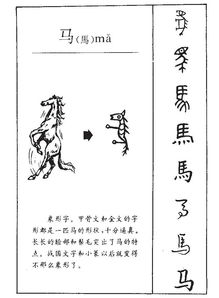 马(馬)mǎ
象形字。甲骨文和金文的字
形都是一匹马的形状,十分逼真。
长长的脸部和鬃毛突出了马的特
点。战国文字和小篆以后就变得
不那么象形了。
馬
馬
馬
马